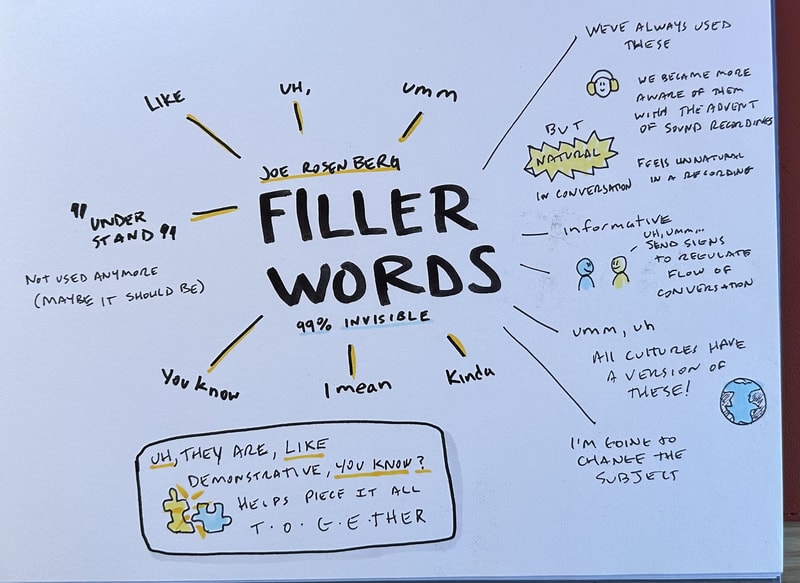 LIKE
UH,
umm
JOE ROSENBERG
FILLER
WORDS
99% INVISIBLE
"UNDER
STAND"
NOT USED ANYMORE
(MAYBE IT SHOULD BE)
You know
I mean
Kinda
UH, THEY ARE, LIKE
DEMONSTRATIVE, YOU KNOW?
HELPS PIECE IT ALL
T·O·G·E·THER
WE'VE ALWAYS USED
THESE
WE BECAME MORE
AWARE OF THEM
WITH THE ADVENT
OF SOUND RECORDINGS
BUT
NATURAL
IN CONVERSATION
FEELS UNNATURAL
IN A RECORDING
informative
UH, UMM...
SEND SIGNS
TO REGULATE
FLOW OF
CONVERSATION
umm, uh
ALL CULTURES HAVE
A VERSION OF
THESE!
I'M GOING TO
CHANGE THE
SUBJECT